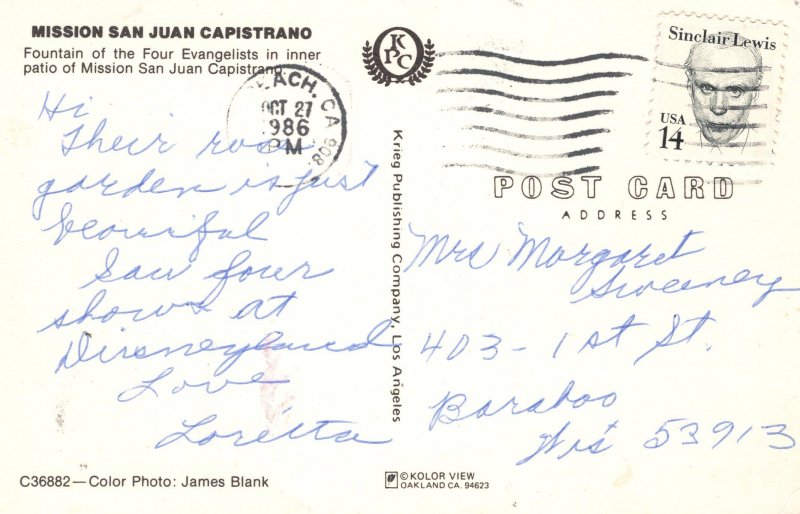 MISSION SAN JUAN CAPISTRANO
Fountain of the Four Evangelists in inner
patio of Mission San Juan Capistrano.
KPC
ACH, CA
OCT 27
1986
PM
908
Sinclair Lewis
USA
14
POST CARD
ADDRESS
Hi
Their rose
garden is just
beautiful
Saw four
shows at
Disneyland
Love
Loretta
Krieg Publishing Company, Los Angeles
Mrs Margaret
Sweeney
403 - 1st St.
Baraboo
Wis 53913
C36882—Color Photo: James Blank
© KOLOR VIEW
OAKLAND CA. 94623